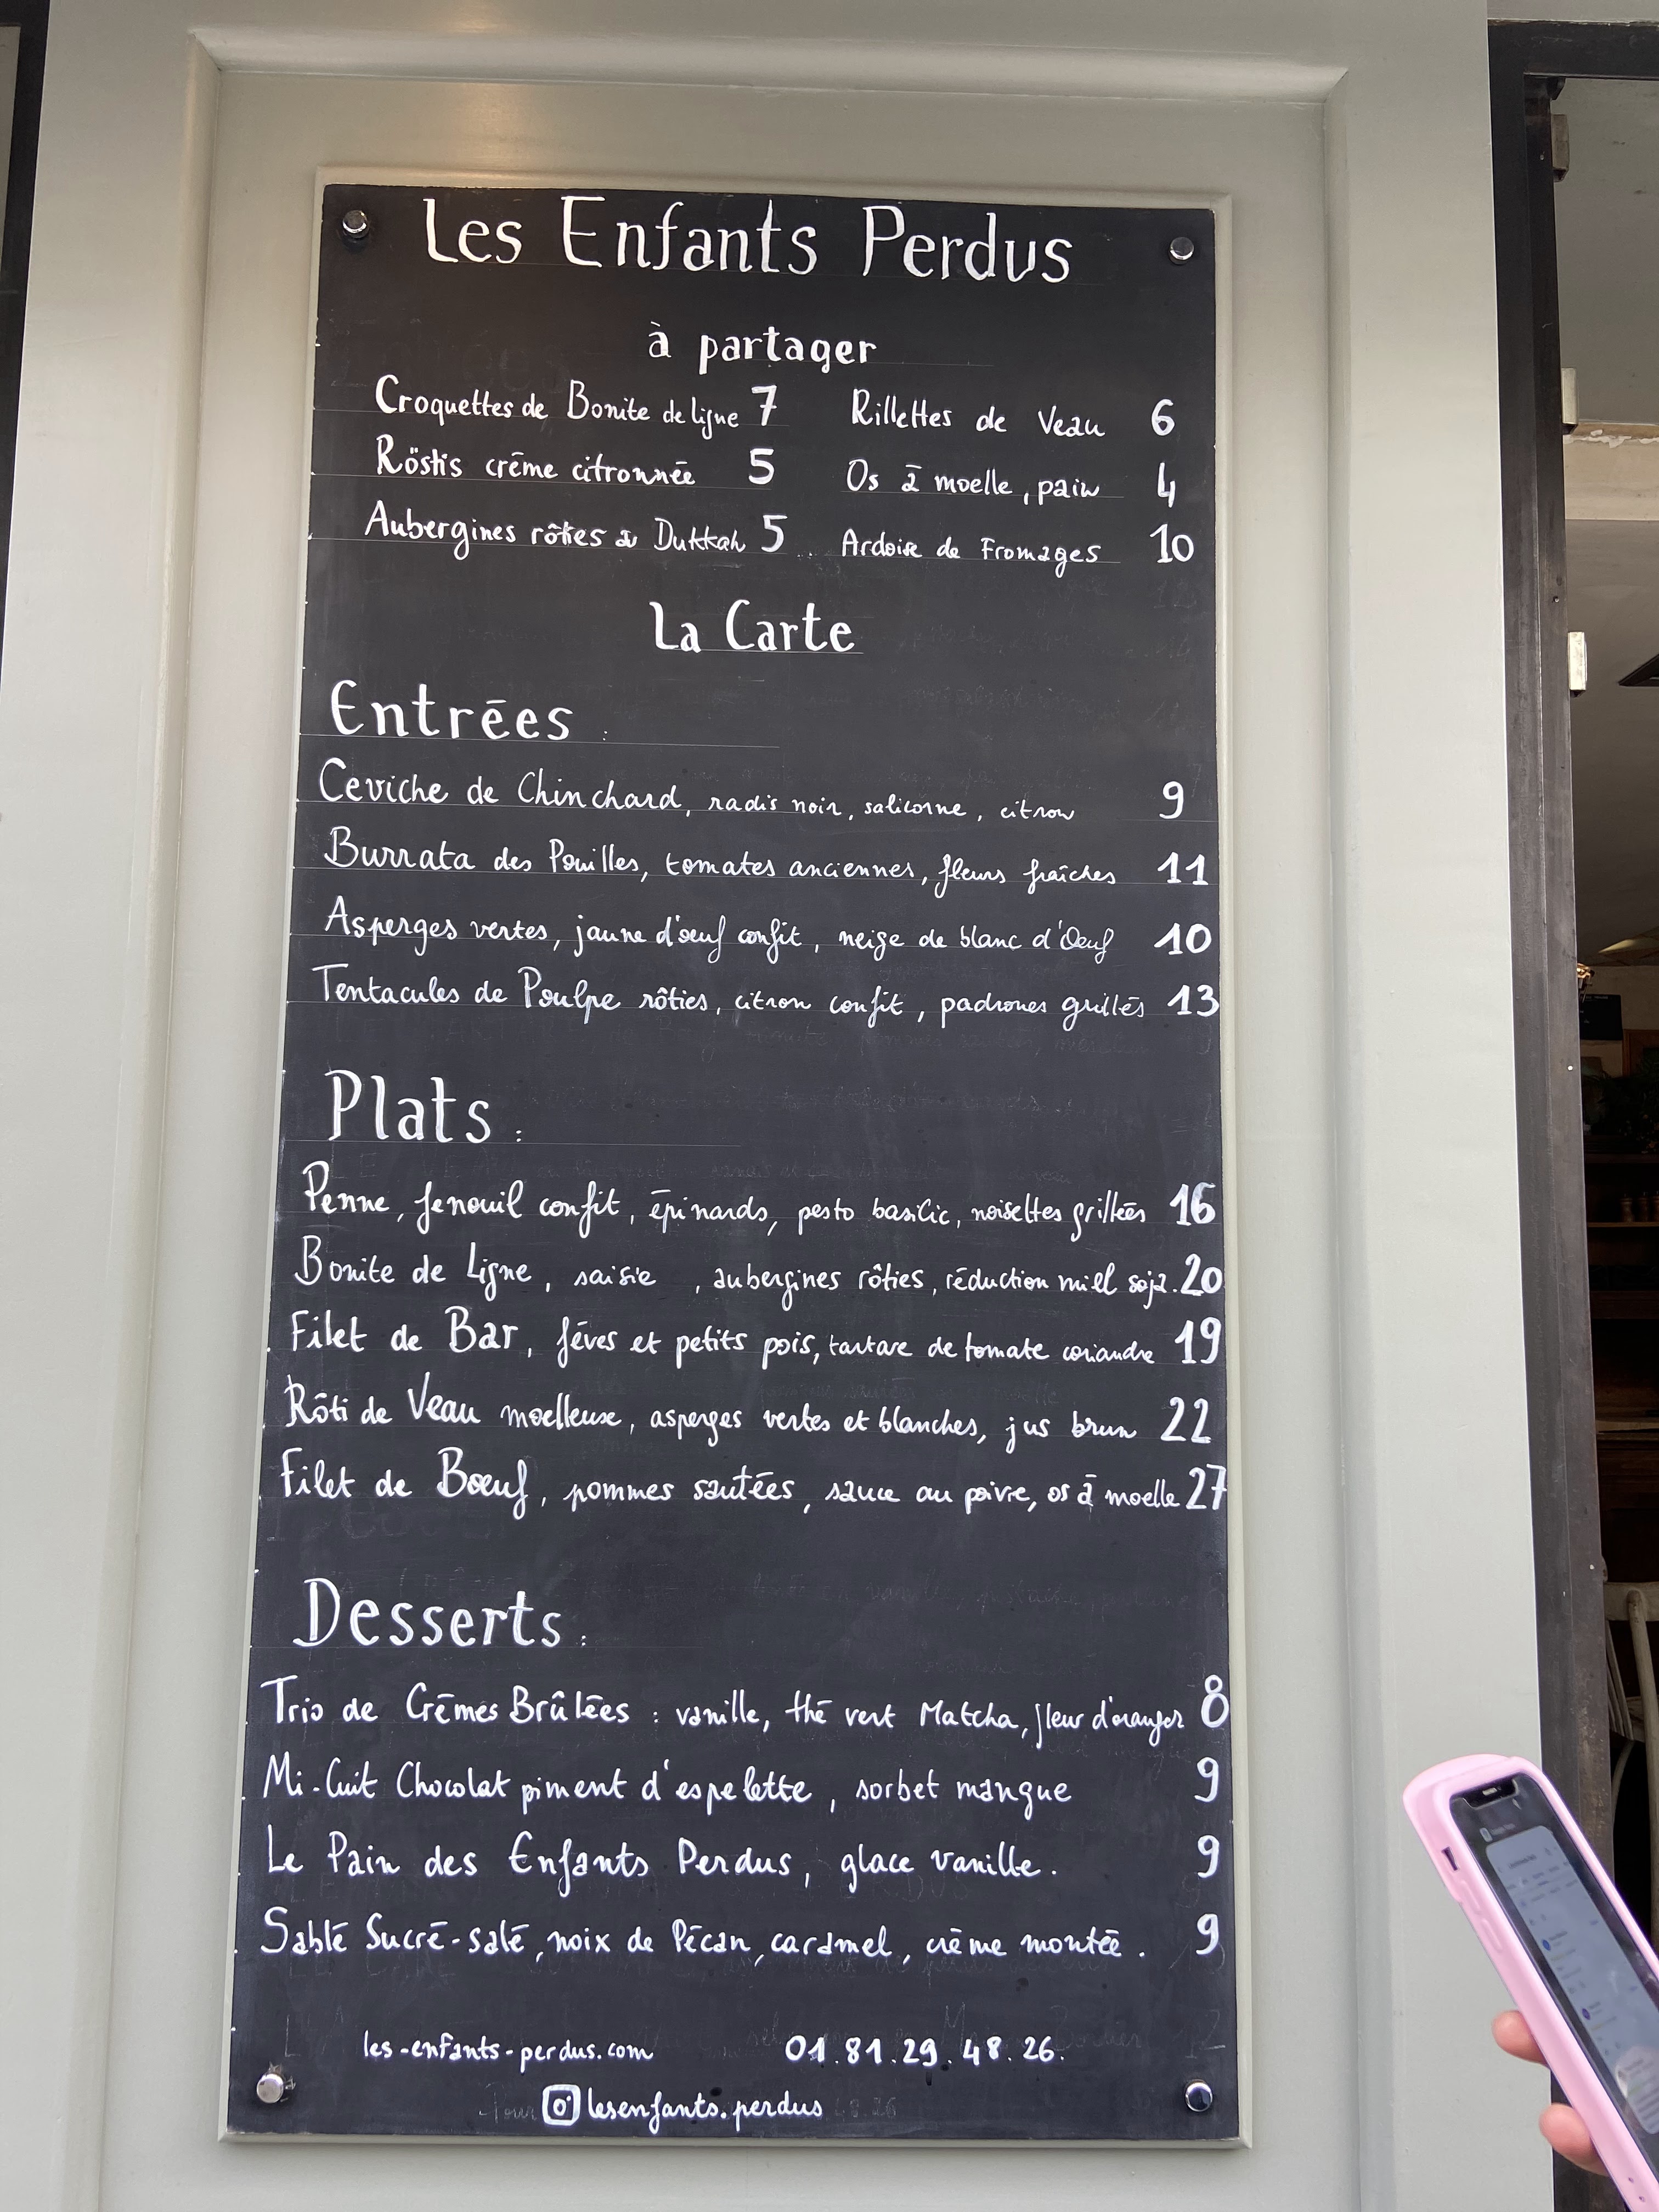 Les Enfants Perdus
à partager
Croquettes de Bonite de ligne 7
Röstis crème citronnée 5
Aubergines rôties & Dukkah 5
Rillettes de Veau 6
Os à moelle, pain 4
Ardoise de Fromages 10
La Carte
Entrées :
Ceviche de Chinchard, radis noir, salicorne, citron 9
Burrata des Pouilles, tomates anciennes, fleurs fraîches 11
Asperges vertes, jaune d'œuf confit, neige de blanc d'Œuf 10
Tentacules de Poulpe rôties, citron confit, padrones grillés 13
Plats :
Penne, fenouil confit, épinards, pesto basilic, noisettes grillées 16
Bonite de Ligne, saisie , aubergines rôties, réduction miel soja. 20
Filet de Bar, fèves et petits pois, tartare de tomate coriandre 19
Rôti de Veau moelleuse, asperges vertes et blanches, jus brun 22
Filet de Bœuf, pommes sautées, sauce au poivre, os à moelle 27
Desserts :
Trio de Crèmes Brûlées : vanille, thé vert Matcha, fleur d'oranger 8
Mi-Cuit Chocolat piment d'espelette, sorbet mangue 9
Le Pain des Enfants Perdus, glace vanille. 9
Sablé Sucré-salé, noix de Pécan, caramel, crème montée. 9
les-enfants-perdus.com 01.81.29.48.26.
lesenfants.perdus